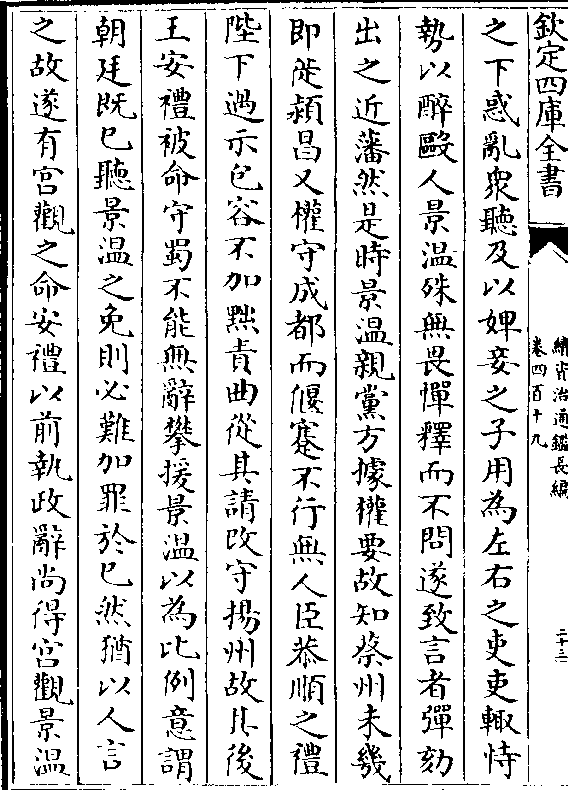 欽定四庫全書
續資治通鑑長編
卷四百十九
二十三
之下惑亂衆聽及以婢妾之子用為左右之吏吏輙恃
勢以醉毆人景温殊無畏憚釋而不問遂致言者彈劾
出之近藩然是時景温親黨方據權要故知蔡州未幾
即徙潁昌又權守成都而偃蹇不行無人臣恭順之禮
陛下過示包容不加黜責曲從其請改守揚州故其後
王安禮被命守蜀不能無辭攀援景温以為比例意謂
朝廷既已聽景温之免則必難加罪於已然猶以人言
之故遂有宫觀之命安禮以前執政辭尚得宫觀景温